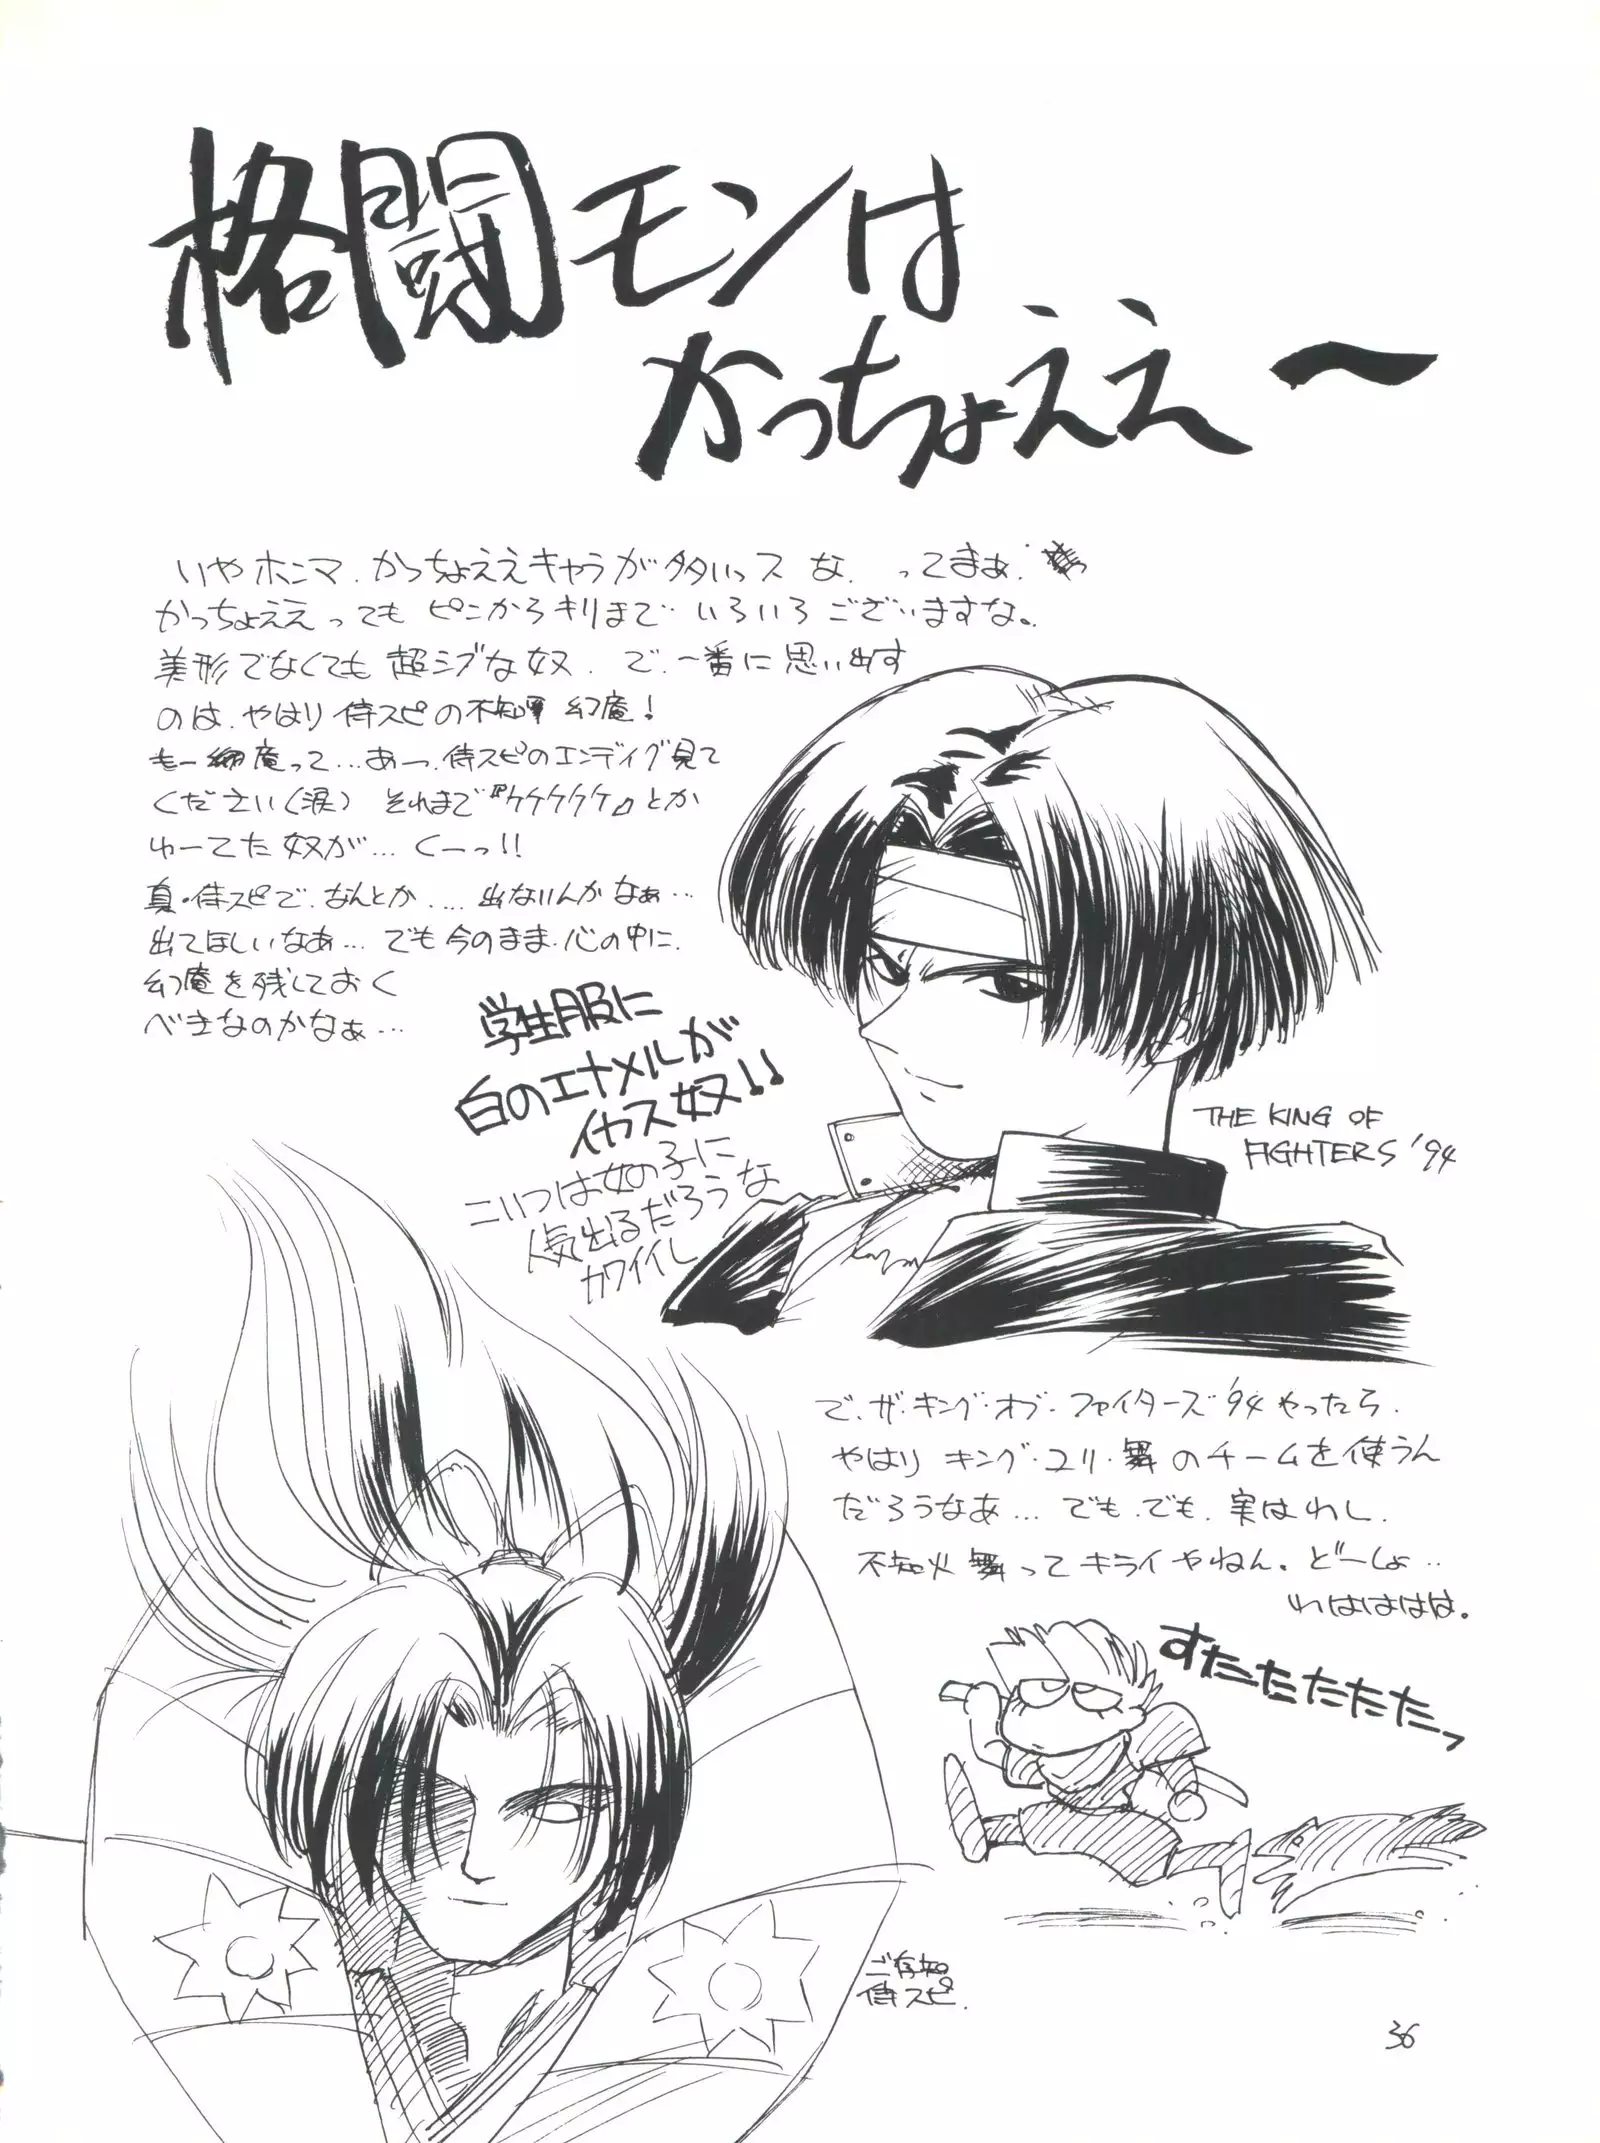 格闘モンは
かっちょええ〜
いやホンマ、かっちょええキャラが多いっスな、ってまぁ、
かっちょええっても ピンからキリまで いろいろございますな。
美形でなくても 超シブな奴、で、一番に思い出す
のは、やはり侍スピの不知火 幻庵!
もー 幻庵って…あーっ、侍スピのエンディグ見て
ください(涙) それまで『ケケケケケ』とか
ゆーてた奴が… くーっ!!
真・侍スピで、なんとか…. 出ないんかなぁ…
出てほしいなあ… でも今のまま、心の中に、
幻庵を残しておく
べきなのかなぁ…
学生服に
白のエナメルが
イカス奴!!
こいつは女の子に
人気出るだろうな
カワイイし
THE KING OF
FIGHTERS '94
で、ザ・キング・オブ・ファイターズ'94やったら、
やはり キング・ユリ・舞のチームを使うん
だろうなあ… でも、でも、実はわし、
不知火 舞ってキライやねん。どーしょ‥
わはははは。
すたたたたたたっ
ご存知
侍スピ.
36